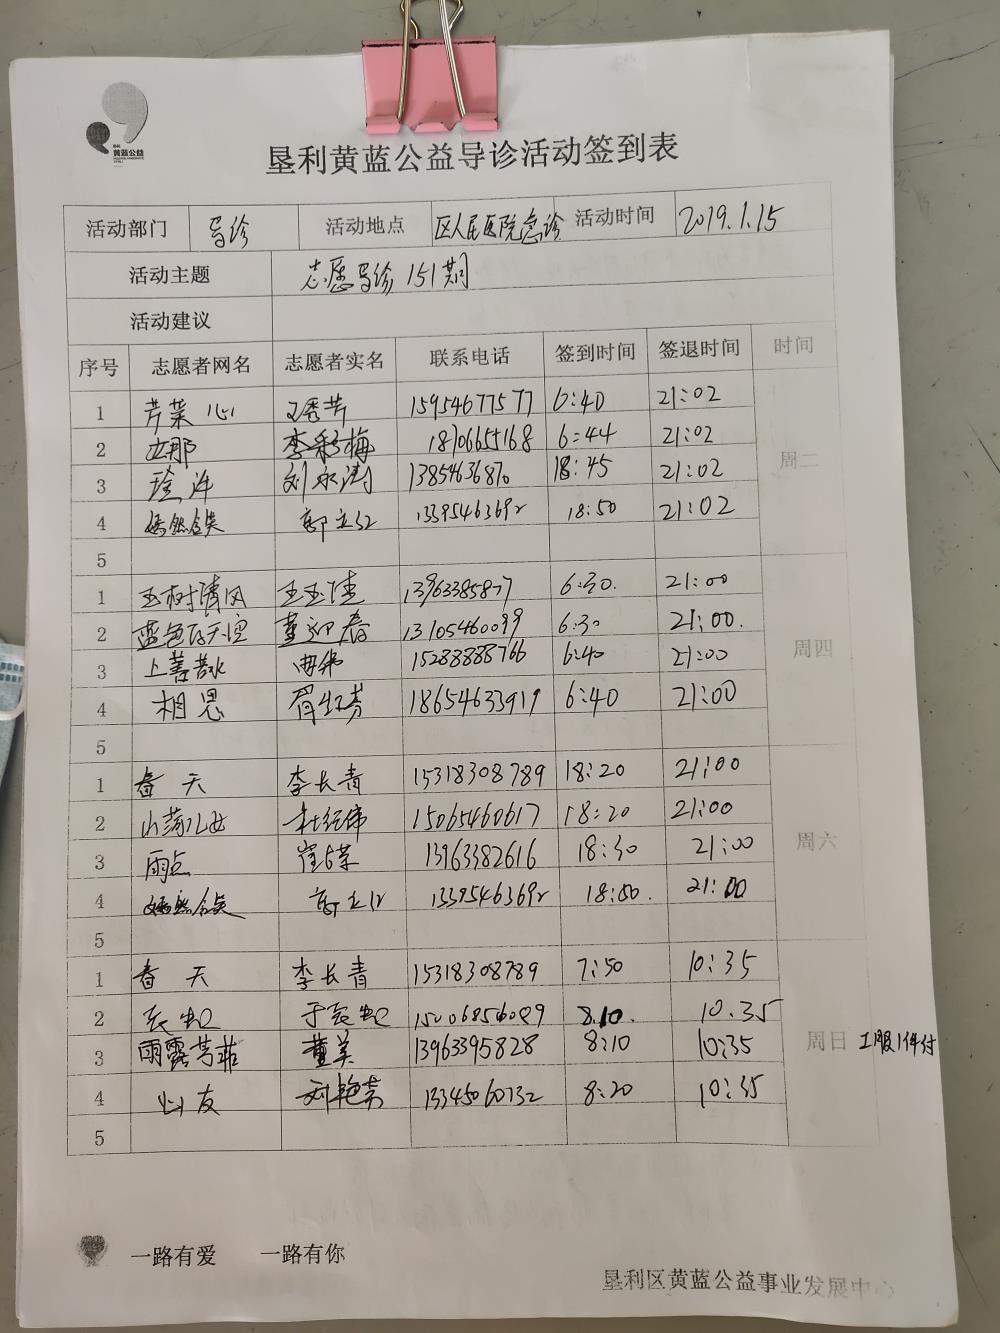 黄蓝公益
垦利黄蓝公益导诊活动签到表
活动部门 导诊 活动地点 区人民医院急诊 活动时间 2019.1.15
活动主题 志愿导诊151期
活动建议
序号 志愿者网名 志愿者实名 联系电话 签到时间 签退时间 时间
1 芹菜心 王秀芹 15954677577 6:40 21:02
2 李彩梅 18706655168 6:44 21:02 周二
3 刘永涛 13854636870 18:45 21:02
4 嫣然含笑 郭立红 13395463692 18:50 21:02
5
1 玉树清风 王玉佳 13963385877 6:30. 21:00
2 蓝色的天空 董迎春 13105460099 6:30 21:00. 周四
3 上善若水 曲伟 15288888766 6:40 21:00
4 相思 18654633919 6:40 21:00
5
1 春天 李长青 15318308789 18:20 21:00
2 山荡儿女 杜经伟 15065460617 18:20 21:00
3 雨点 13963382616 18:30 21:00 周六
4 嫣然含笑 郭立红 13395463692 18:50. 21:00
5
1 春天 李长青 15318308789 7:50 10:35
2 8.10. 10.35
3 雨露芳菲 董美 13963395828 8:10 10:35 周日 工服1件付
4 山友 刘艳芳 13345060732 8:20 10:35
5
一路有爱 一路有你
垦利区黄蓝公益事业发展中心